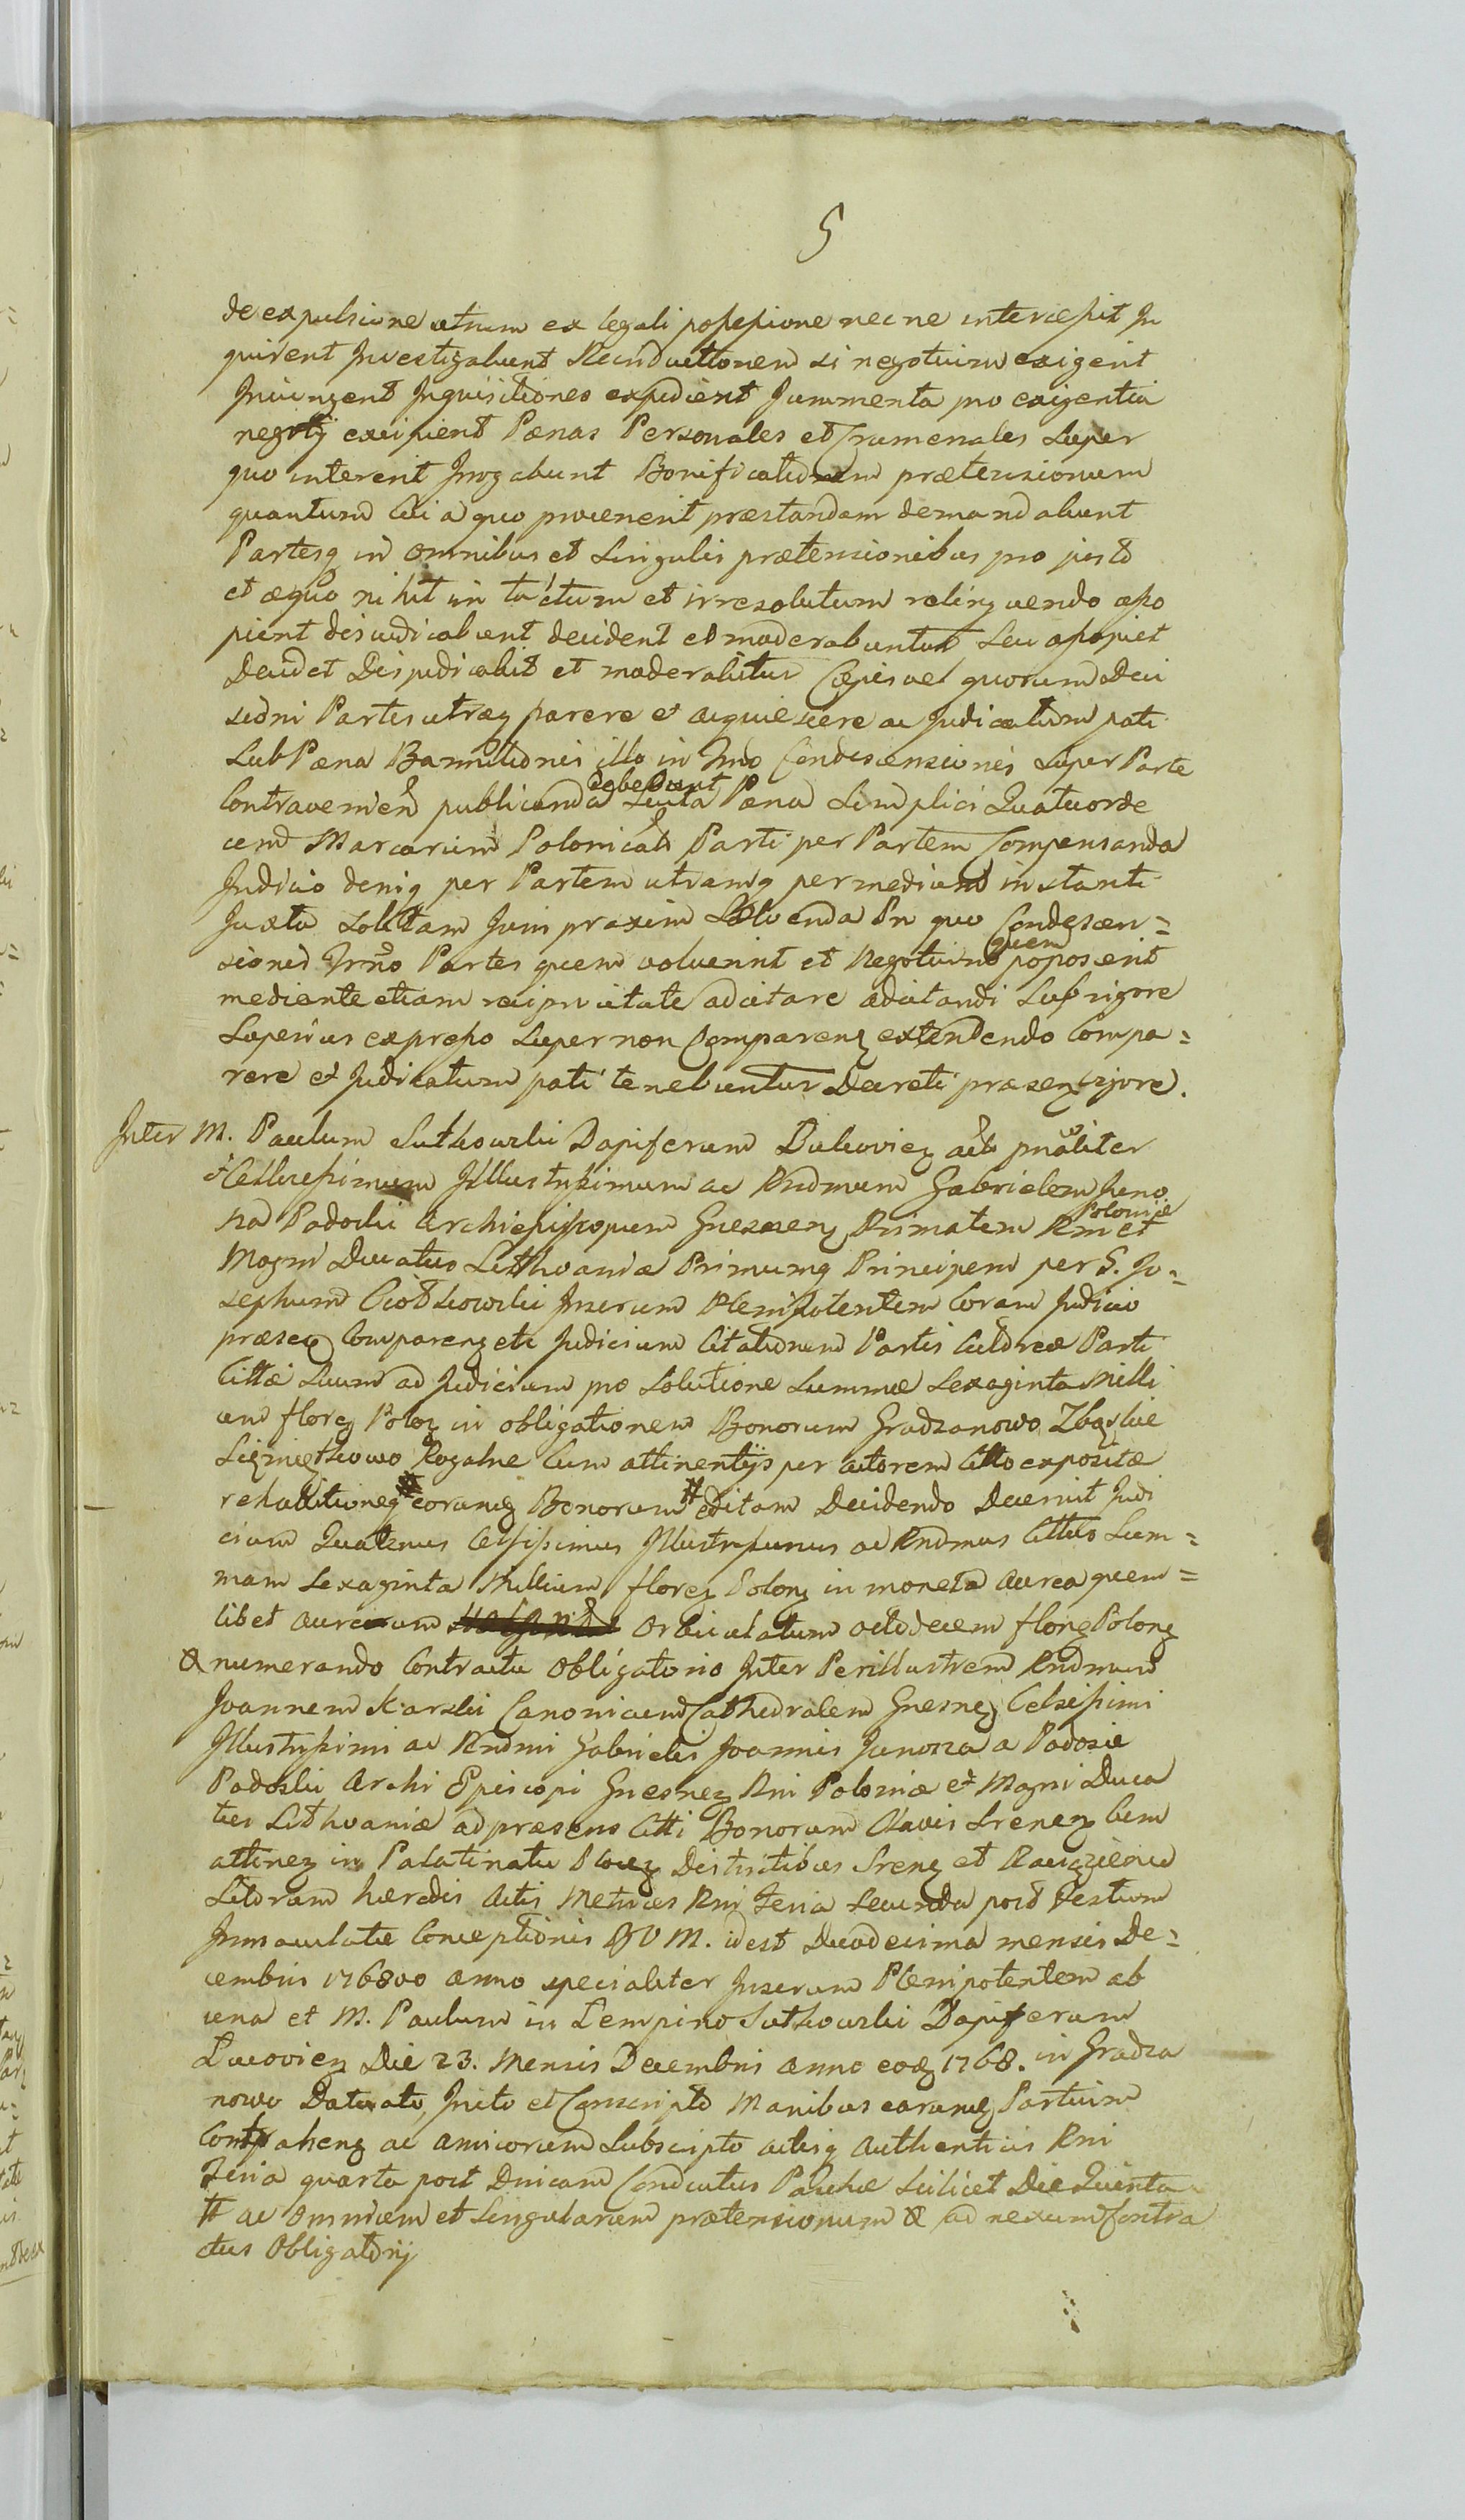 5
de expulsione utrum ex legali possessione nec ne intercessit In
quirent Investigabunt Reinductionem si negotium exigerit
Iniungent Inquisitiones expedient Juramenta pro exigentia
negotij excipient Pænas Personales et Crumenales super
quo intererit Irrogabunt Bonificationem prætensionum
quantum Cui a quo provenerit præstandam demandabunt
Partesq in omnibus et singulis prætensionibus pro justo
et æquo nihil in tactum et irresolutum relinquendo appo
nient disiudicabunt decident et moderabuntur seu
Decidet Disjudicabit et moderabitur Copia vel quorum Deci
sioni Partes utræq parere et acquiescere ac Judicatum pati
Sub Pæna Bannitionis illo in Trno Condescensionis super Parte
Contravenien publicanda debebunt Pæna simplici Quatuorde
cem Marcarum Polonicals Parti per Partem Compensanda
Judicio deniq per Partem utramq per medium instanti
Juxta solitam Juris praxim solvenda In quo Condescen=
sionis Trno Partes quem voluerint et Negotium quem poposcerit
mediante etiam reciprocitate adcitare adcitandi sub rigore
Superius expresso super non Comparen extendendo Compa=
rere et Judicatum pati tenebuntur Decreti præsen vigore.
Inter M. Paulum Sutkowski Dapiferum Bukovien actorem pnaliter
et Celsissimum Illustrissimum ac Rndmum Gabrielem Juno
sza Podoski Archiepiscopum Gnesnen Primatem Rni Poloniæ et
Magni Ducatus Lithvaniæ Primumq Principem per G. Jo=
sephum Ciotkowski Juserum Plenipotentem Coram Judicio
præsen Comparen etc Judicium Citationem Partis Actoreæ Parti
Cittæ Suum ad Judicium pro solutione Summæ Sexaginta Milli
um floren Polon in obligationem Bonorum Gradzanowo Zbąskie
Rogalne Cum attinentijs per actorem Citto expositæ
rehabitioneq # eorumq Bonorum # editam Decidendo Decernit Judi
cium Quatenus Celsissimus Illustrissimus ac Rndmus Cittus Sum=
mam Sexaginta Millium floren Polon in moneta aurea quem=
libet aureorum orbiculatum octodecem floren Polon
& numerando Contractu Obligatorio Inter Perillustrem Rndmum
Joannem Karski Canonicum Cathedralem Gnesnen Celsissimi
Illustrissimi ac Rndmi Gabrielis Joannis Junosza a Podosie
Podoski Archi Episcopi Gnesnen Rni Poloniæ et Magni Duca
tus Lithvaniæ ad præsens Citti Bonorum Clavis Srenen Cum
attinen in Palatinatu Plocen Districtibus Srenen et Raciążiensi
Sitoram hæredis Actis Metrices Rni Feria Secunda post Festum
Immaculatæ Conceptionis BVM. idest Duodecima mensis De=
cembris 176800 anno specialiter Juserum Plenipotentem ab
una et M. Paulum in Lempino Sutkowski Dapiferum
Bucovien Die 23. Mensis Decembris anno eod 1768. in Gradza
nowo Datato, Inito et Conscripto Manibus earumq Partium
Contrahen ac amicorum Subscripto actisq Authenticis Rni
Feria quarta post Dnicam Conductus Paschæ scilicet Die Quinta
# ac omnium et singularum prætensionum & ad nexum Contra
ctus Obligatorij